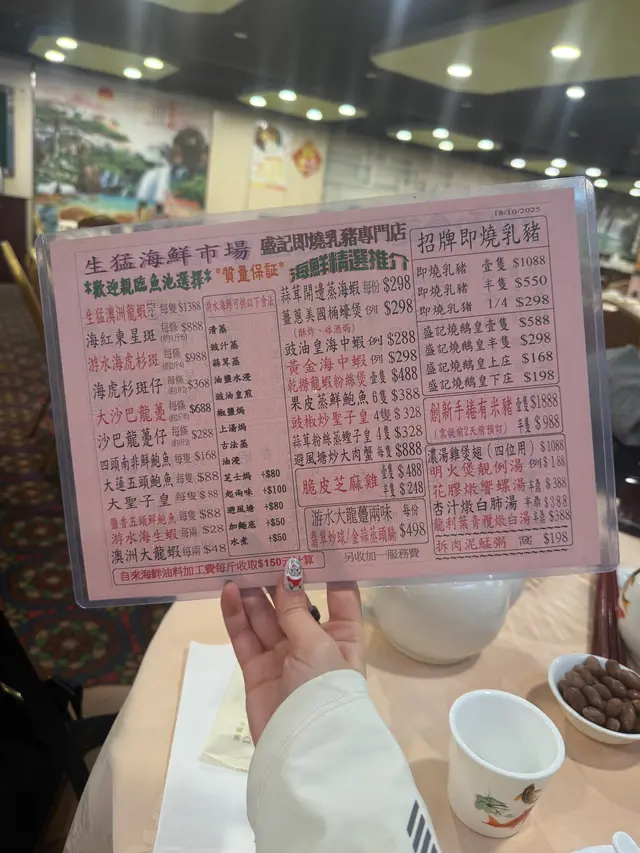 18/10/2025
生猛海鮮市場 盛記即燒乳豬專門店
*歡迎親臨魚池選擇* *質量保証* 海鮮精選推介
生猛澳洲龍蝦 每隻$1388
海紅東星斑 每條$888
游水海虎杉斑 每條$988
海虎杉斑仔 每條$368
大沙巴龍躉 每條$688
沙巴龍躉仔 每條$288
四頭南非鮮鮑魚 每隻$168
大連五頭鮑魚 每隻$88
大聖子皇 每隻$88
鹽香五頭鮮鮑魚 每隻$88
游水海生蝦 每兩$28
澳洲大龍蝦 每兩$48
游水海鮮可供以下食法
清蒸
豉汁蒸
蒜茸蒸
油鹽水浸
豉油皇煎
椒鹽焗
上湯焗
古法蒸
油浸
芝士焗 +$80
起兩味 +$100
避風塘 +$80
加麵底 +$50
水煮 +$50
蒜茸開邊蒸海蝦 每份$298
薑蔥美國桶蠔煲 例$298
豉油皇海中蝦 例$288
黃金海中蝦 例$298
乾撈龍蝦粉絲煲 壹隻$488
果皮蒸鮮鮑魚 6隻$388
豉椒炒聖子皇 4隻$328
蒜茸粉絲蒸聖子皇 4隻$328
避風塘炒大肉蟹 每隻$888
脆皮芝麻雞 壹隻$488
半隻$248
游水大龍躉兩味 每份
翡翠炒球/金蒜蒸頭腩 $498
招牌即燒乳豬
即燒乳豬 壹隻$1088
即燒乳豬 半隻$550
即燒乳豬 1/4 $298
盛記燒鵝皇 壹隻$588
盛記燒鵝皇 半隻$298
盛記燒鵝皇 上庄 $168
盛記燒鵝皇 下庄 $198
創新手捲有米豬 壹隻$1888
(需提前2天前預訂) 半隻$988
濃湯雞煲翅（四位用） $1088
明火煲靚例湯 例$188
花膠燉響螺湯 $388
杏汁燉白肺湯 $388
龍利葉青欖燉白湯 $388
拆肉泥鯭粥 窩 $198
自來海鮮油料加工費每斤收取$150 算 另收加一服務費